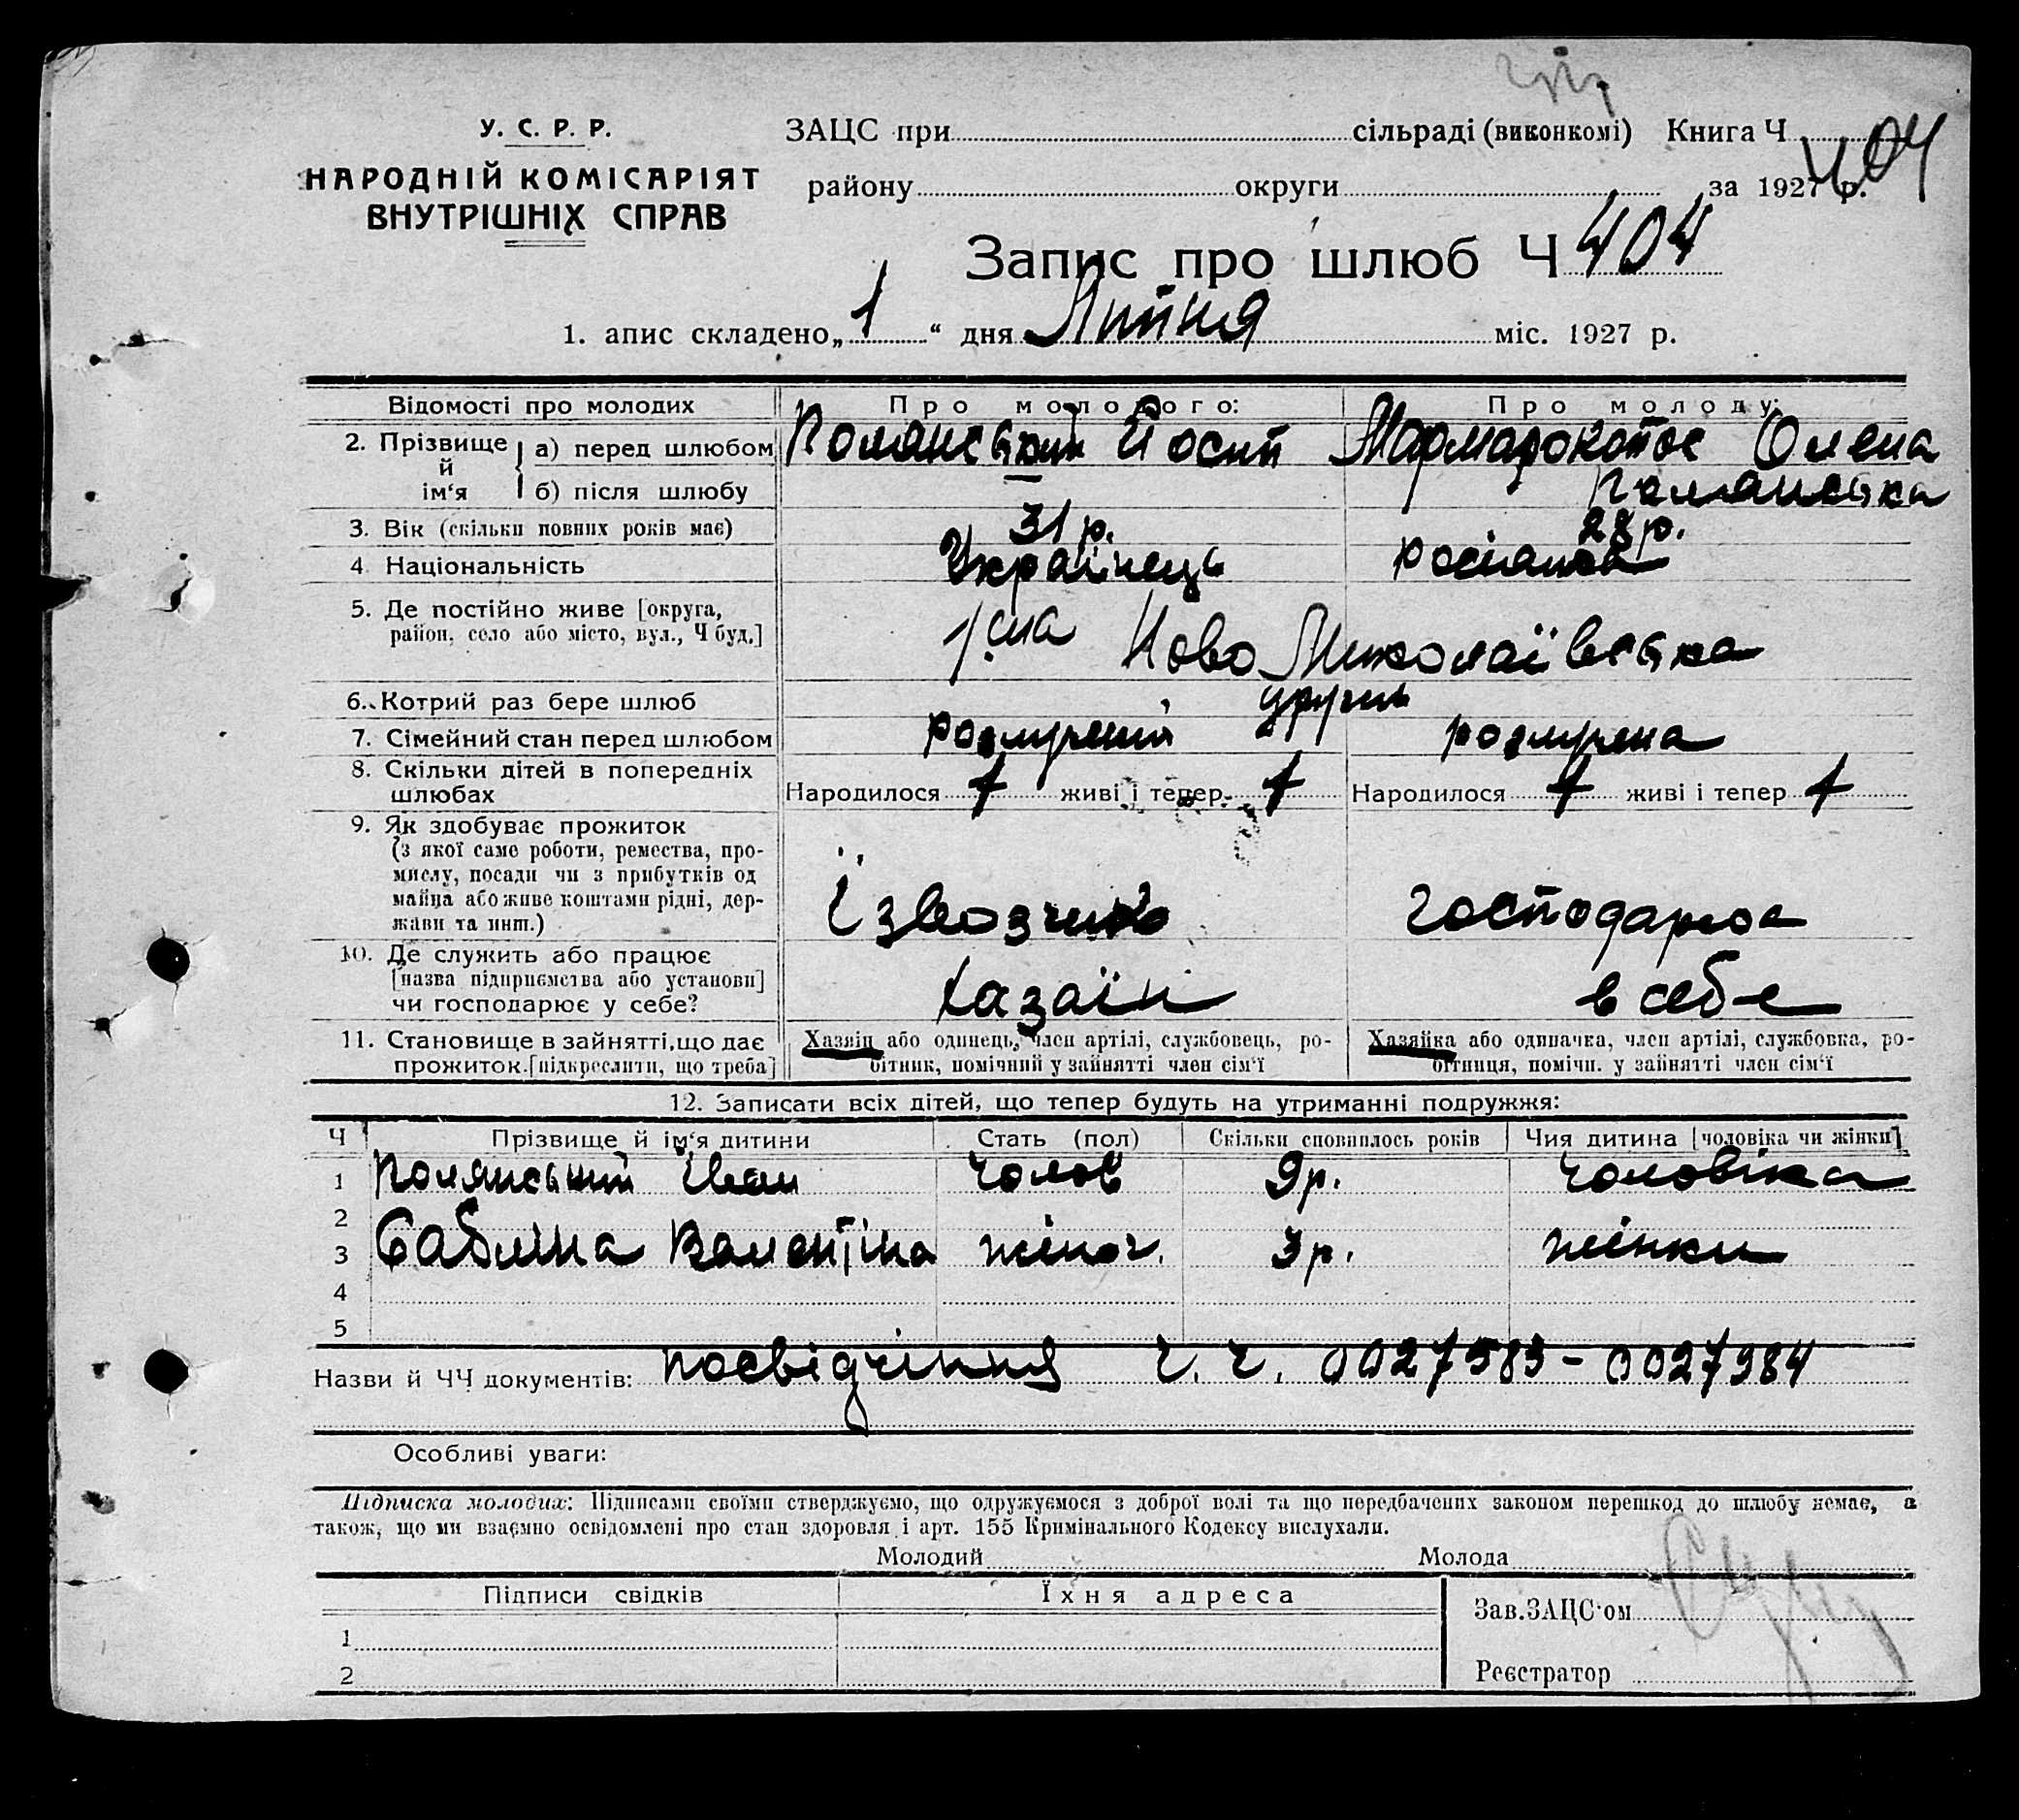 У. С. Р. Р.
НАРОДНІЙ КОМІСАРІЯТ
ВНУТРІШНІХ СПРАВ
ЗАЦС при сільраді (виконкомі) Книга Ч
404
району округи за 1927 р.
Запис про шлюб Ч 404
1. апис складено „1“ дня Липня міс. 1927 р.
Відомості про молодих Про молодого: Про молоду:
2. Прізвище й ім‘я а) перед шлюбом Полянський Йосип Мармарокопос Олена
б) після шлюбу Полянська
3. Вік (скільки повних років має) 31 р. 28 р.
4 Національність Українець росіянка
5. Де постійно живе [округа,
район, село або місто, вул., Ч буд.] Ново Миколаївська
6. Котрий раз бере шлюб другий
7. Сімейний стан перед шлюбом розлучений розлучена
8. Скільки дітей в попередніх
шлюбах Народилося 1 живі і тепер 1 Народилося 1 живі і тепер 1
9. Як здобуває прожиток
(з якої саме роботи, ремества, про-
мислу, посади чи з прибутків од
майна або живе коштами рідні, дер-
жави та инш.) Ізвозчик господарює
10. Де служить або працює
[назва підприємства або установи]
чи господарює у себе? Хазяїн в себе
11. Становище в зайнятті, що дає
прожиток. [підкреслити, що треба]
Хазяїн або одинець, член артілі, службовець, ро-
бітник, помічний у зайнятті член сім‘ї
Хазяйка або одиначка, член артілі, службовка, ро-
бітниця, помічн. у зайнятті член сім‘ї
12. Записати всіх дітей, що тепер будуть на утриманні подружжя:
Ч Прізвище й ім‘я дитини Стать (пол) Скільки сповнилось років Чия дитина [чоловіка чи жінки]
1 Полянський Іван чолов 9 р. чоловіка
2
3 Сабліна Валентіна жіноч. 3 р. жінки
4
5
Назви й ЧЧ документів: посвідчіння ч. ч. 0027583 - 0027984
Особливі уваги:
Підписка молодих: Підписами своїми стверджуємо, що одружуємося з доброї волі та що передбачених законом перешкод до шлюбу немає, а
також, що ми взаємно освідомлені про стан здоровля і арт. 155 Кримінального Кодексу вислухали.
Молодий Молода
Підписи свідків Їхня адреса
Зав.ЗАЦС‘ом
1
2
Реєстратор